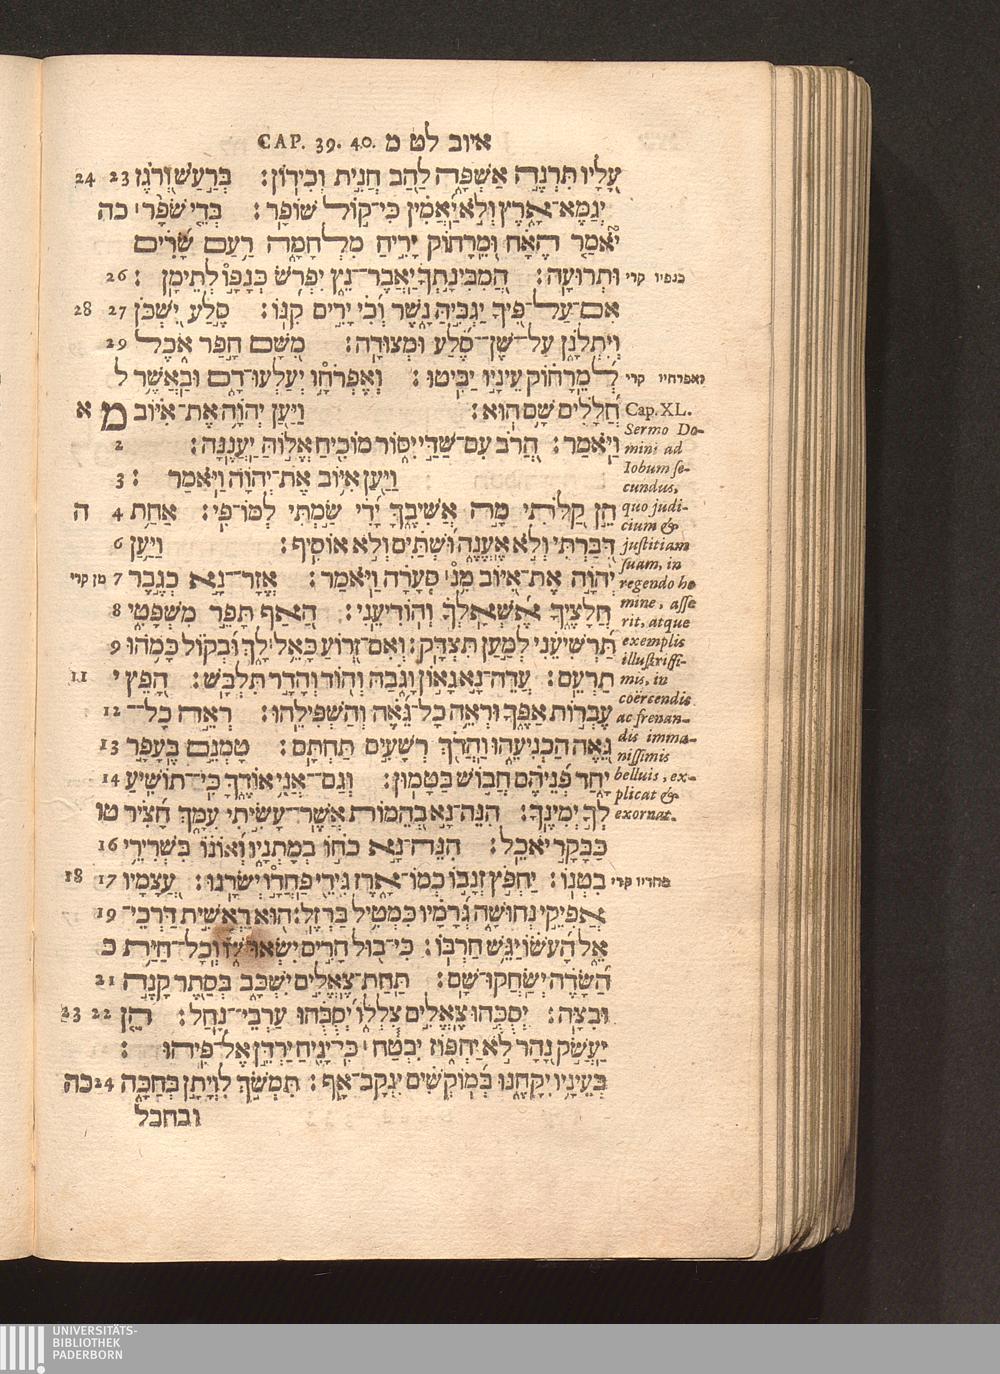 CAP. 39. 40. איוב לט מ
עָלָיו תִּרְנֶה אַשְׁפָּה לַהַב חֲנִית וְכִידוֹן׃ בְּרַעַשׁ וְרֹגֶז 23 24
יְגַמֶּא־אָרֶץ וְלֹא יַאֲמִין כִּי־קוֹל שׁוֹפָר׃ בְּדֵי שֹׁפָר׀ כה
יֹאמַר הֶאָח וּמֵרָחוֹק יָרִיחַ מִלְחָמָה רַעַם שָׂרִים
וּתְרוּעָה׃ הֲמִבִּינָתְךָ יַאֲבֶר־נֵץ יִפְרֹשׂ כְּנָפָו לְתֵימָן׃ 26
כנפיו קרי
אִם־עַל־פִּיךָ יַגְבִּיהַּ נָשֶׁר וְכִי יָרִים קִנּוֹ׃ סֶלַע יִשְׁכֹּן 27 28
וְיִתְלֹנָן עַל־שֶׁן־סֶלַע וּמְצוּדָה׃ מִשָּׁם חָפַר אֹכֶל 29
לְמֵרָחוֹק עֵינָיו יַבִּיטוּ׃ וְאֶפְרֹחָו יְעַלְעוּ־דָם וּבַאֲשֶׁר ל
ואפרחיו קרי
חֲלָלִים שָׁם הוּא׃ וַיַּעַן יְהוָה אֶת־אִיּוֹב מ א
וַיֹּאמַר׃ הֲרֹב עִם־שַׁדַּי יִסּוֹר מוֹכִיחַ אֱלוֹהַּ יַעֲנֶנָּה׃ 2
וַיַּעַן אִיּוֹב אֶת־יְהוָה וַיֹּאמַר׃ 3
הֵן קַלֹּתִי מָה אֲשִׁיבֶךָּ יָדִי שַׂמְתִּי לְמוֹ־פִי׃ אַחַת 4 ה
דִּבַּרְתִּי וְלֹא אֶעֱנֶה וּשְׁתַּיִם וְלֹא אוֹסִיף׃ וַיַּעַן 6
יְהוָה אֶת־אִיּוֹב מִנ׀ סְעָרָה וַיֹּאמַר׃ אֱזָר־נָא כְגֶבֶר 7 מן קרי
חֲלָצֶיךָ אֶשְׁאָלְךָ וְהוֹדִיעֵנִי׃ הַאַף תָּפֵר מִשְׁפָּטִי 8
תַּרְשִׁיעֵנִי לְמַעַן תִּצְדָּק׃ וְאִם־זְרוֹעַ כָּאֵל׀ לָךְ וּבְקוֹל כָּמֹהוּ 9
תַרְעֵם׃ עֲדֵה־נָא גָאוֹן וָגֹבַהּ וְהוֹד וְהָדָר תִּלְבָּשׁ׃ הָפֵץ י 11
עֶבְרוֹת אַפֶּךָ וּרְאֵה כָל־גֵּאֶה וְהַשְׁפִּילֵהוּ׃ רְאֵה כָל־ 12
גֵּאֶה הַכְנִיעֵהוּ וַהֲדֹךְ רְשָׁעִים תַּחְתָּם׃ טָמְנֵם בֶּעָפָר 13
יָחַד פְּנֵיהֶם חֲבוֹשׁ בַּטָּמוּן׃ וְגַם־אֲנִי אוֹדֶךָּ כִּי־תוֹשִׁיעַ 14
לְךָ יְמִינֶךָ׃ הִנֵּה־נָא בְהֵמוֹת אֲשֶׁר־עָשִׂיתִי עִמָּךְ חָצִיר טו
כַּבָּקָר יֹאכֵל׃ הִנֵּה־נָא כֹחוֹ בְמָתְנָיו וְאוֹנוֹ בִּשְׁרִירֵי 16
בִטְנוֹ׃ יַחְפֹּץ זְנָבוֹ כְמוֹ־אָרֶז גִּידֵי פַחֲדָו יְשֹׂרָגוּ׃ עֲצָמָיו 17 18
פחדיו קרי
אֲפִיקֵי נְחוּשָׁה גְּרָמָיו כִּמְטִיל בַּרְזֶל׃ הוּא רֵאשִׁית דַּרְכֵי־ 19
אֵל הָעֹשׂוֹ יַגֵּשׁ חַרְבּוֹ׃ כִּי־בוּל הָרִים יִשְׂאוּ־לוֹ וְכָל־חַיַּת כ
הַשָּׂדֶה יְשַׂחֲקוּ־שָׁם׃ תַּחַת־צֶאֱלִים יִשְׁכָּב בְּסֵתֶר קָנֶה 21
וּבִצָּה׃ יְסֻכֻּהוּ צֶאֱלִים צִלֲלוֹ יְסֻבּוּהוּ עַרְבֵי־נָחַל׃ הֵן 22 23
יַעֲשֹׁק נָהָר לֹא יַחְפּוֹז יִבְטַח׀ כִּי־יָגִיחַ יַרְדֵּן אֶל־פִּיהוּ׃
בְּעֵינָיו יִקָּחֶנּוּ בְּמוֹקְשִׁים יִנְקָב־אָף׃ תִּמְשֹׁךְ לִוְיָתָן בְּחַכָּה 24 כה
ובחבל
Cap. XL.
Sermo Do-
mini ad
Iobum se-
cundus,
quo judi-
cium &
justitiam
suam, in
regendo ho
mine, asse
rit, atque
exemplis
illustrissi-
mis, in
coërcendis
ac frenan-
dis imma-
nissimis
belluis, ex-
plicat &
exornat.
UNIVERSITÄTS-
BIBLIOTHEK
PADERBORN